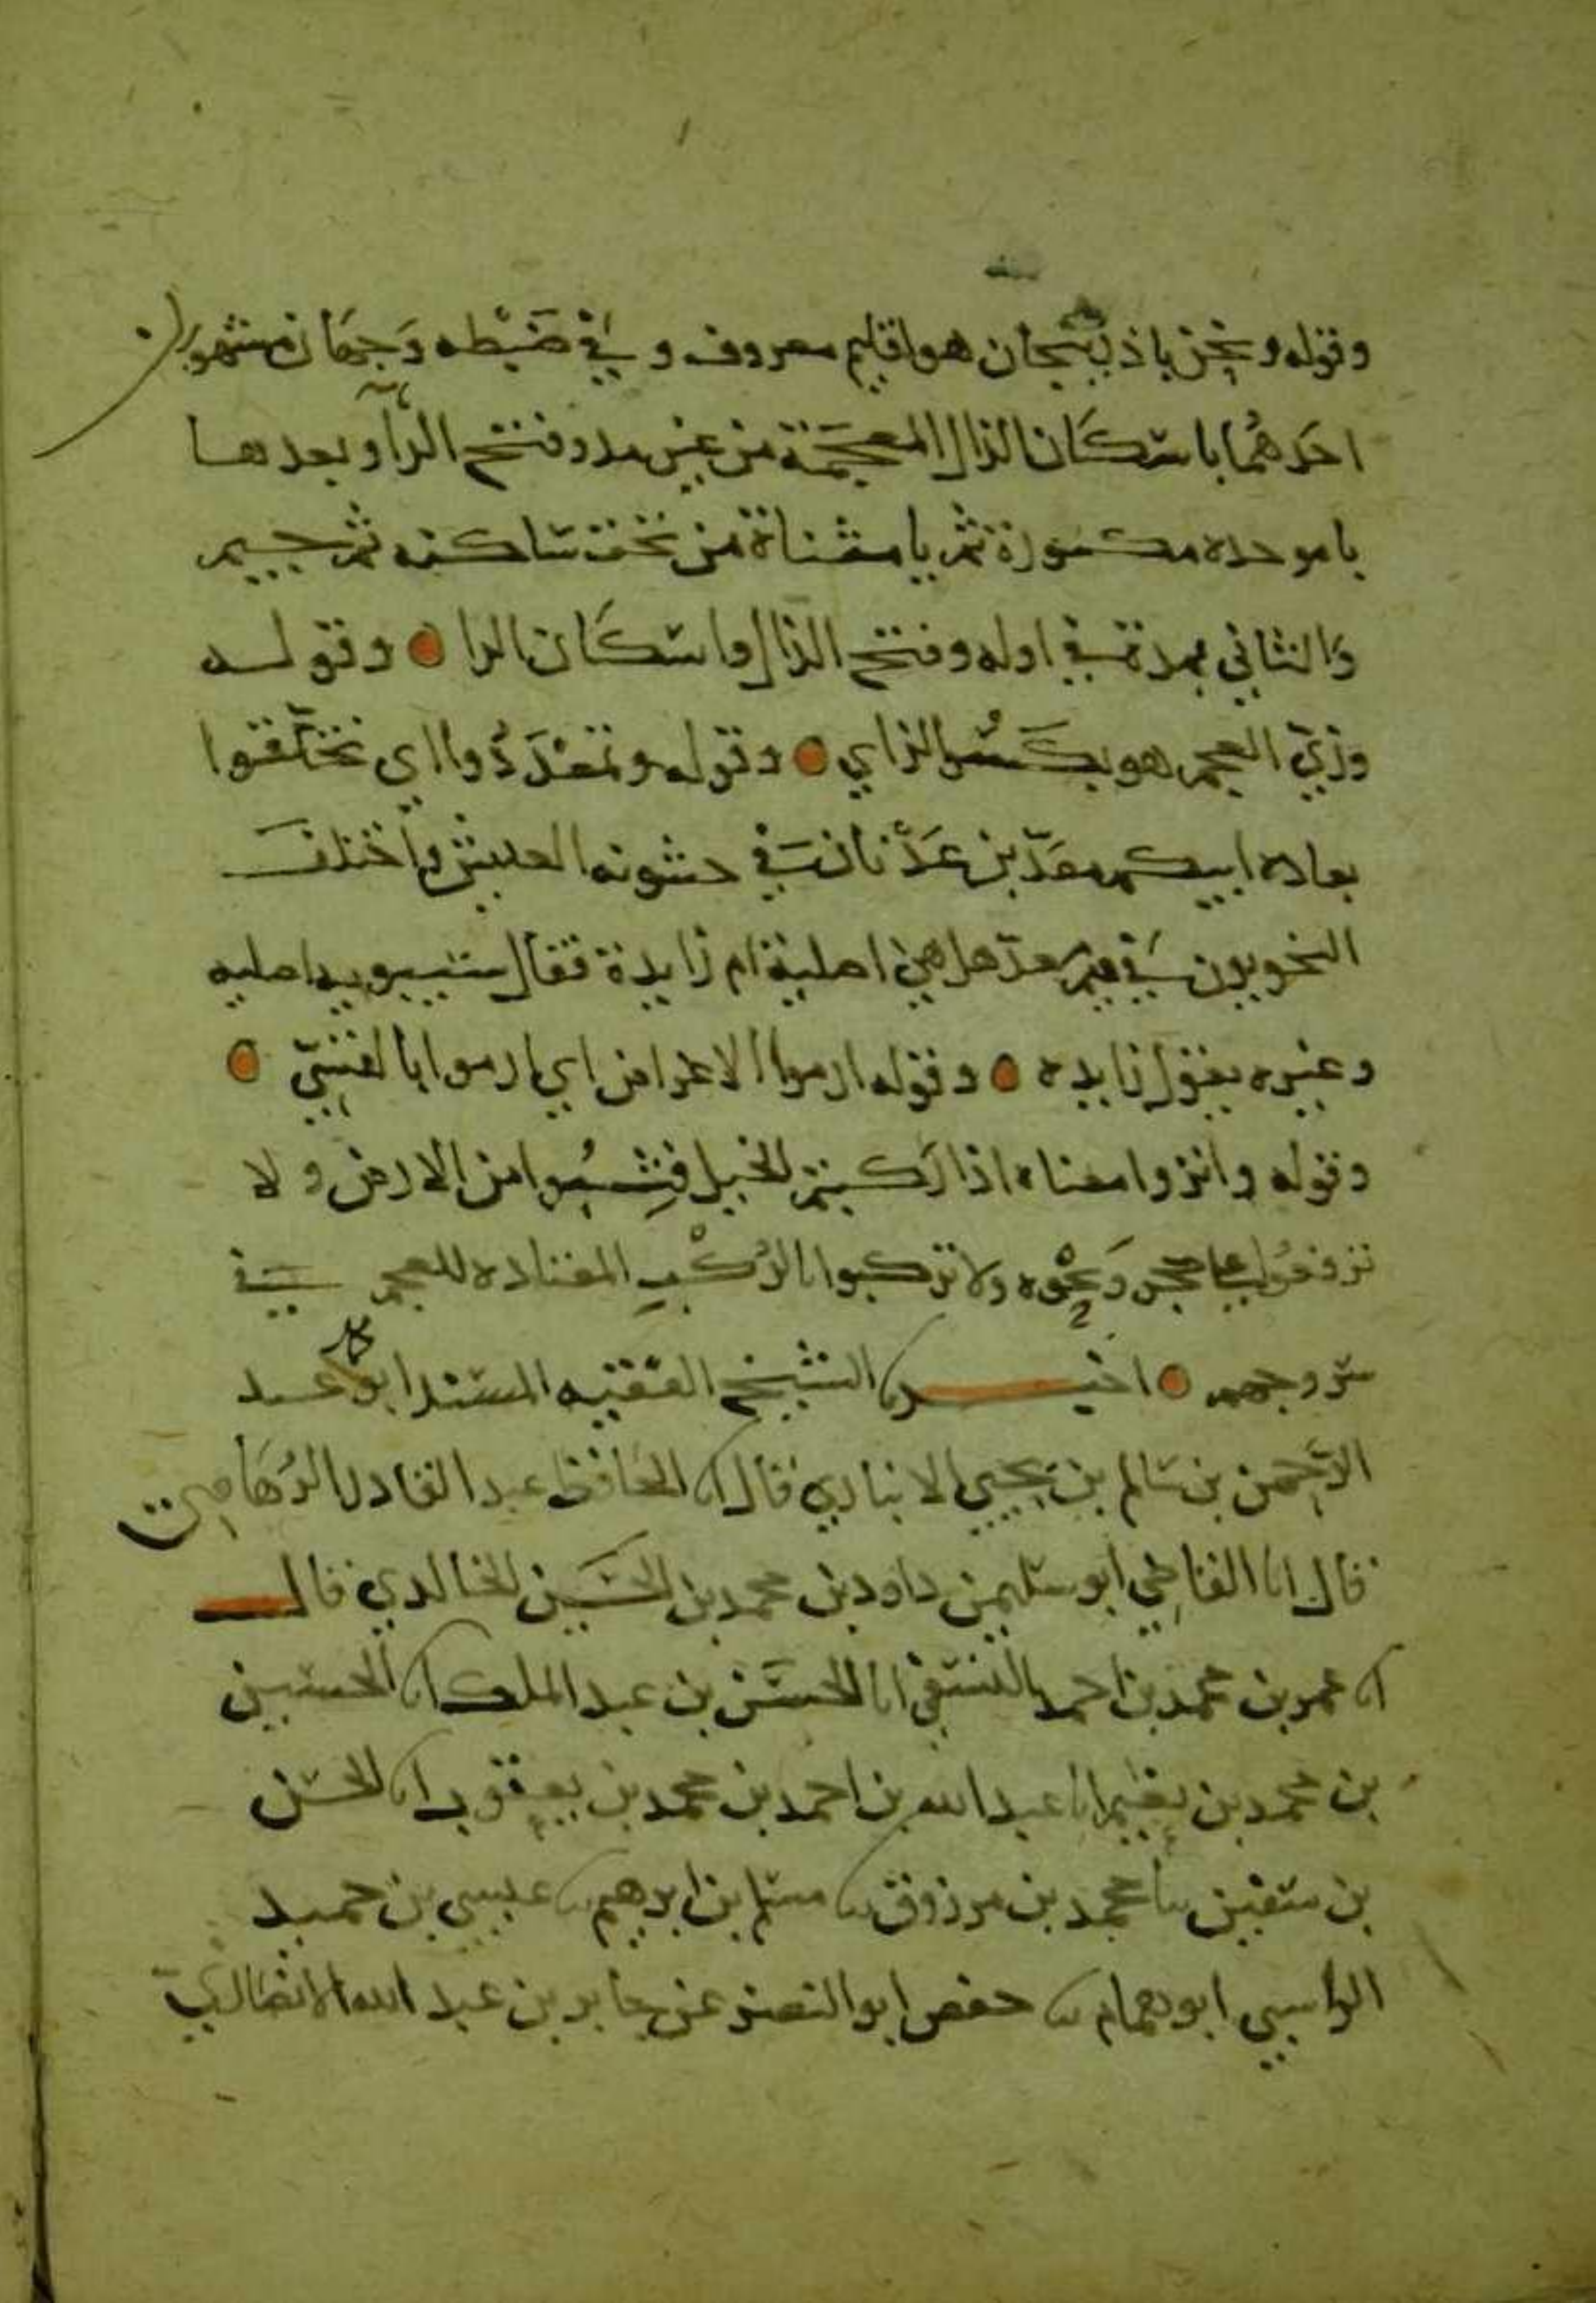 وقوله ونحن باذربيجان هو اقليم معروف وفي ضبطه وجهان مشهوران
احدهما باسكان الذال المعجمة من غير مد وفتح الرآ وبعدها
با موحده مكسورة ثم يا مثناة من تحت ساكنه ثم جيم
والثاني بمدة في اوله وفتح الذال واسكان الرا وقوله
وزيّ العجم هو بكسر الزاي وقوله وتمعددوا اي تخلّقوا
بعاده ابيكم معدّ بن عدنان في خشونه العيش واختلف
النحويون في ميم معدّ هل هي اصلية ام زايدة فقال سيبويه اصليه
وغيره يقول زايده وقوله ارموا الاغراض اي ارموا بالقسيّ
وقوله وانزوا معناه اذا ركبتم الخيل فثِبُوا من الارض ولا
تزفعوا على حجر ونحوه ولا تركبوا بالرُكْبِ المعتاده للعجم في
سروجهم اخبرنا الشيخ الفقيه المسند ابو محمد عبد
الرحمن بن سالم بن يحيي الانباري قال انا الحافظ عبد القادر الرُهَاويّ
قال انا القاضي ابو سليمن داود بن محمد بن الحسين الخالدي قال
انا عمر بن محمد بن احمد النسفي انا الحسَن بن عبد الملك انا الحسين
بن محمد بن نعيم انا عبد الله بن احمد بن محمد بن يعقوب انا الحسن
بن سفين نا محمد بن مرزوق نا مسلم بن ابرهيم نا عيسى بن حميد
الراسبي ابو همام نا حفص ابو النصر عن جابر بن عبد الله الانصاريّ